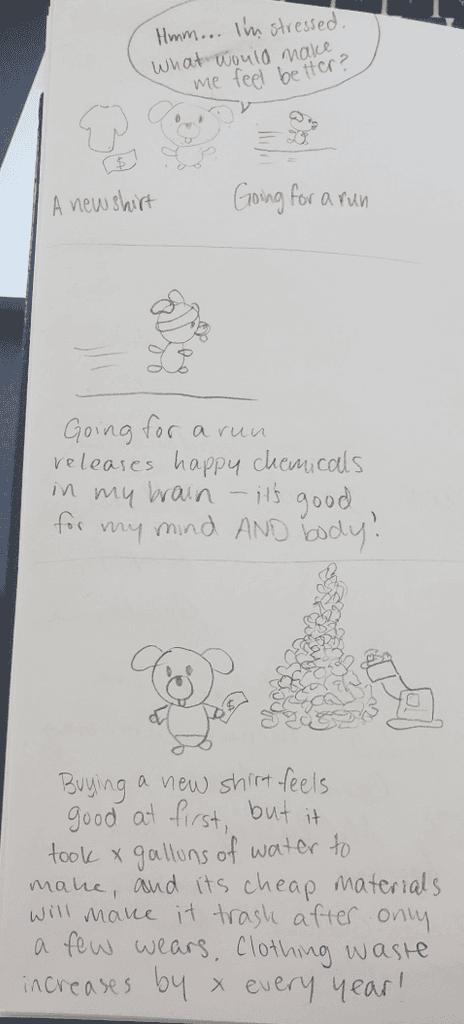 Hmm... I'm stressed.
What would make
me feel better?
$
A new shirt
Going for a run
Going for a run
releases happy chemicals
in my brain – it's good
for my mind AND body!
$
Buying a new shirt feels
good at first, but it
took x gallons of water to
make, and its cheap materials
will make it trash after only
a few wears. Clothing waste
increases by x every year!